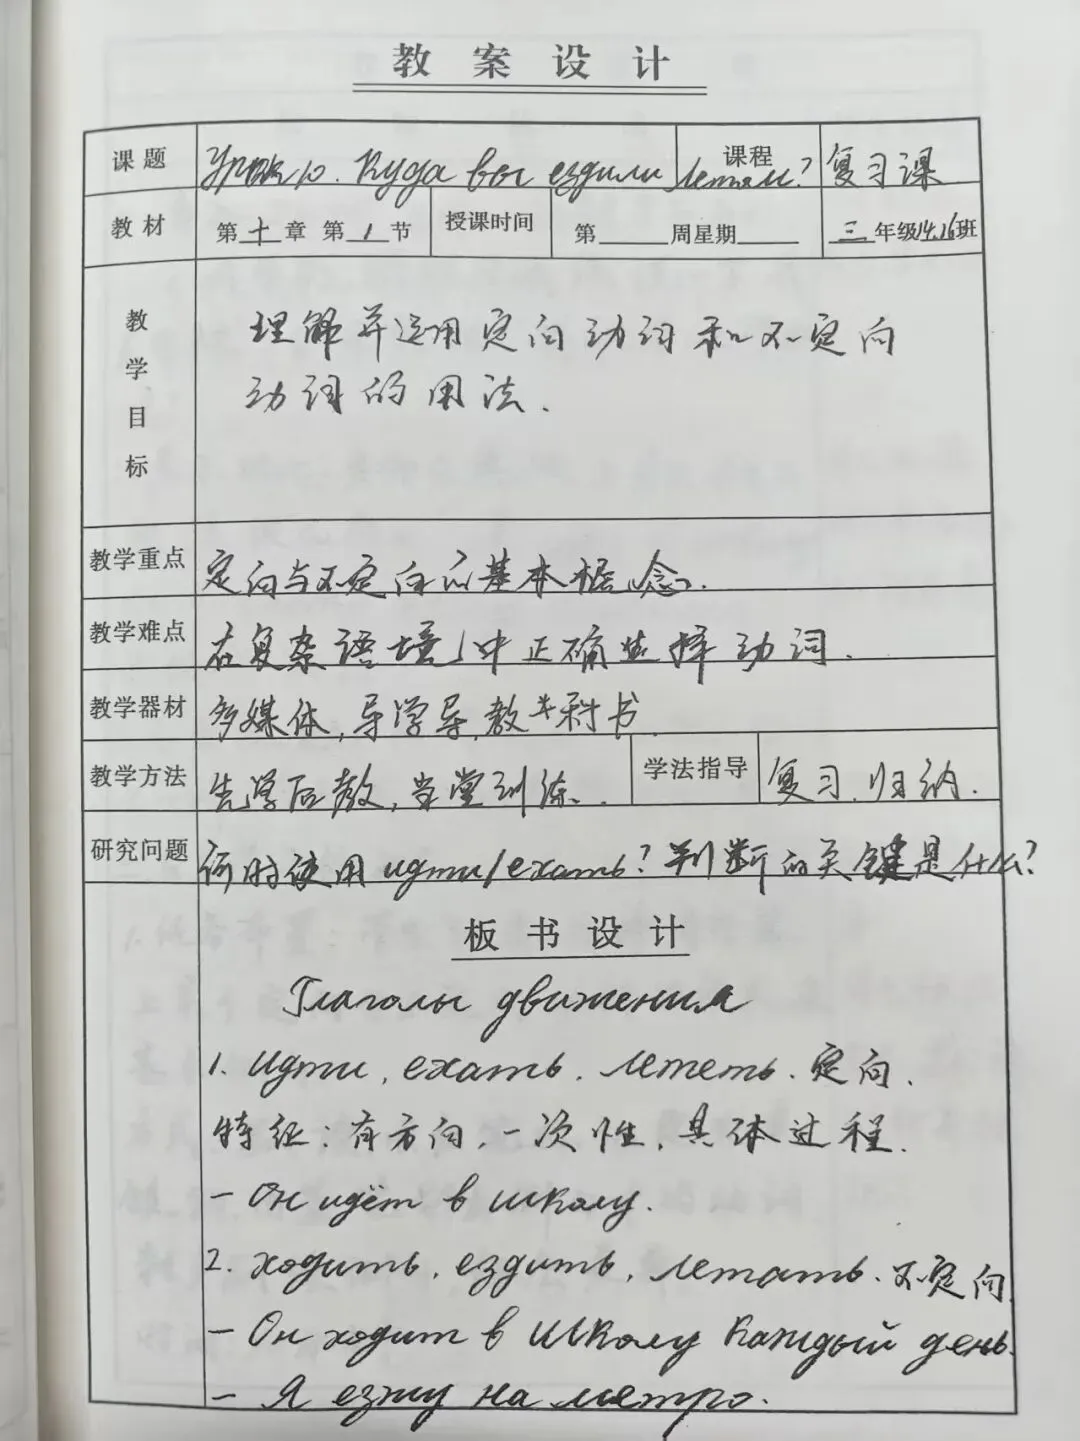 教案设计
课题 Урок 10. Куда вы ездили летом? 课程 复习课
教材 第十章 第1节 授课时间 第 周星期 三年级14.16班
教学目标
理解并运用定向动词和不定向
动词的用法.
教学重点 定向与不定向的基本概念.
教学难点 在复杂语境中正确选择动词.
教学器材 多媒体,导学导,教科书
教学方法 先学后教,当堂训练. 学法指导 复习.归纳.
研究问题 何时使用идти/ехать?判断的关键是什么?
板书设计
Глаголы движения
1. Идти, ехать. лететь. 定向.
特征:有方向,一次性,具体过程.
- Он идёт в школу.
2. ходить, ездить, летать. 不定向.
- Он ходит в школу каждый день.
- Я езжу на метро.